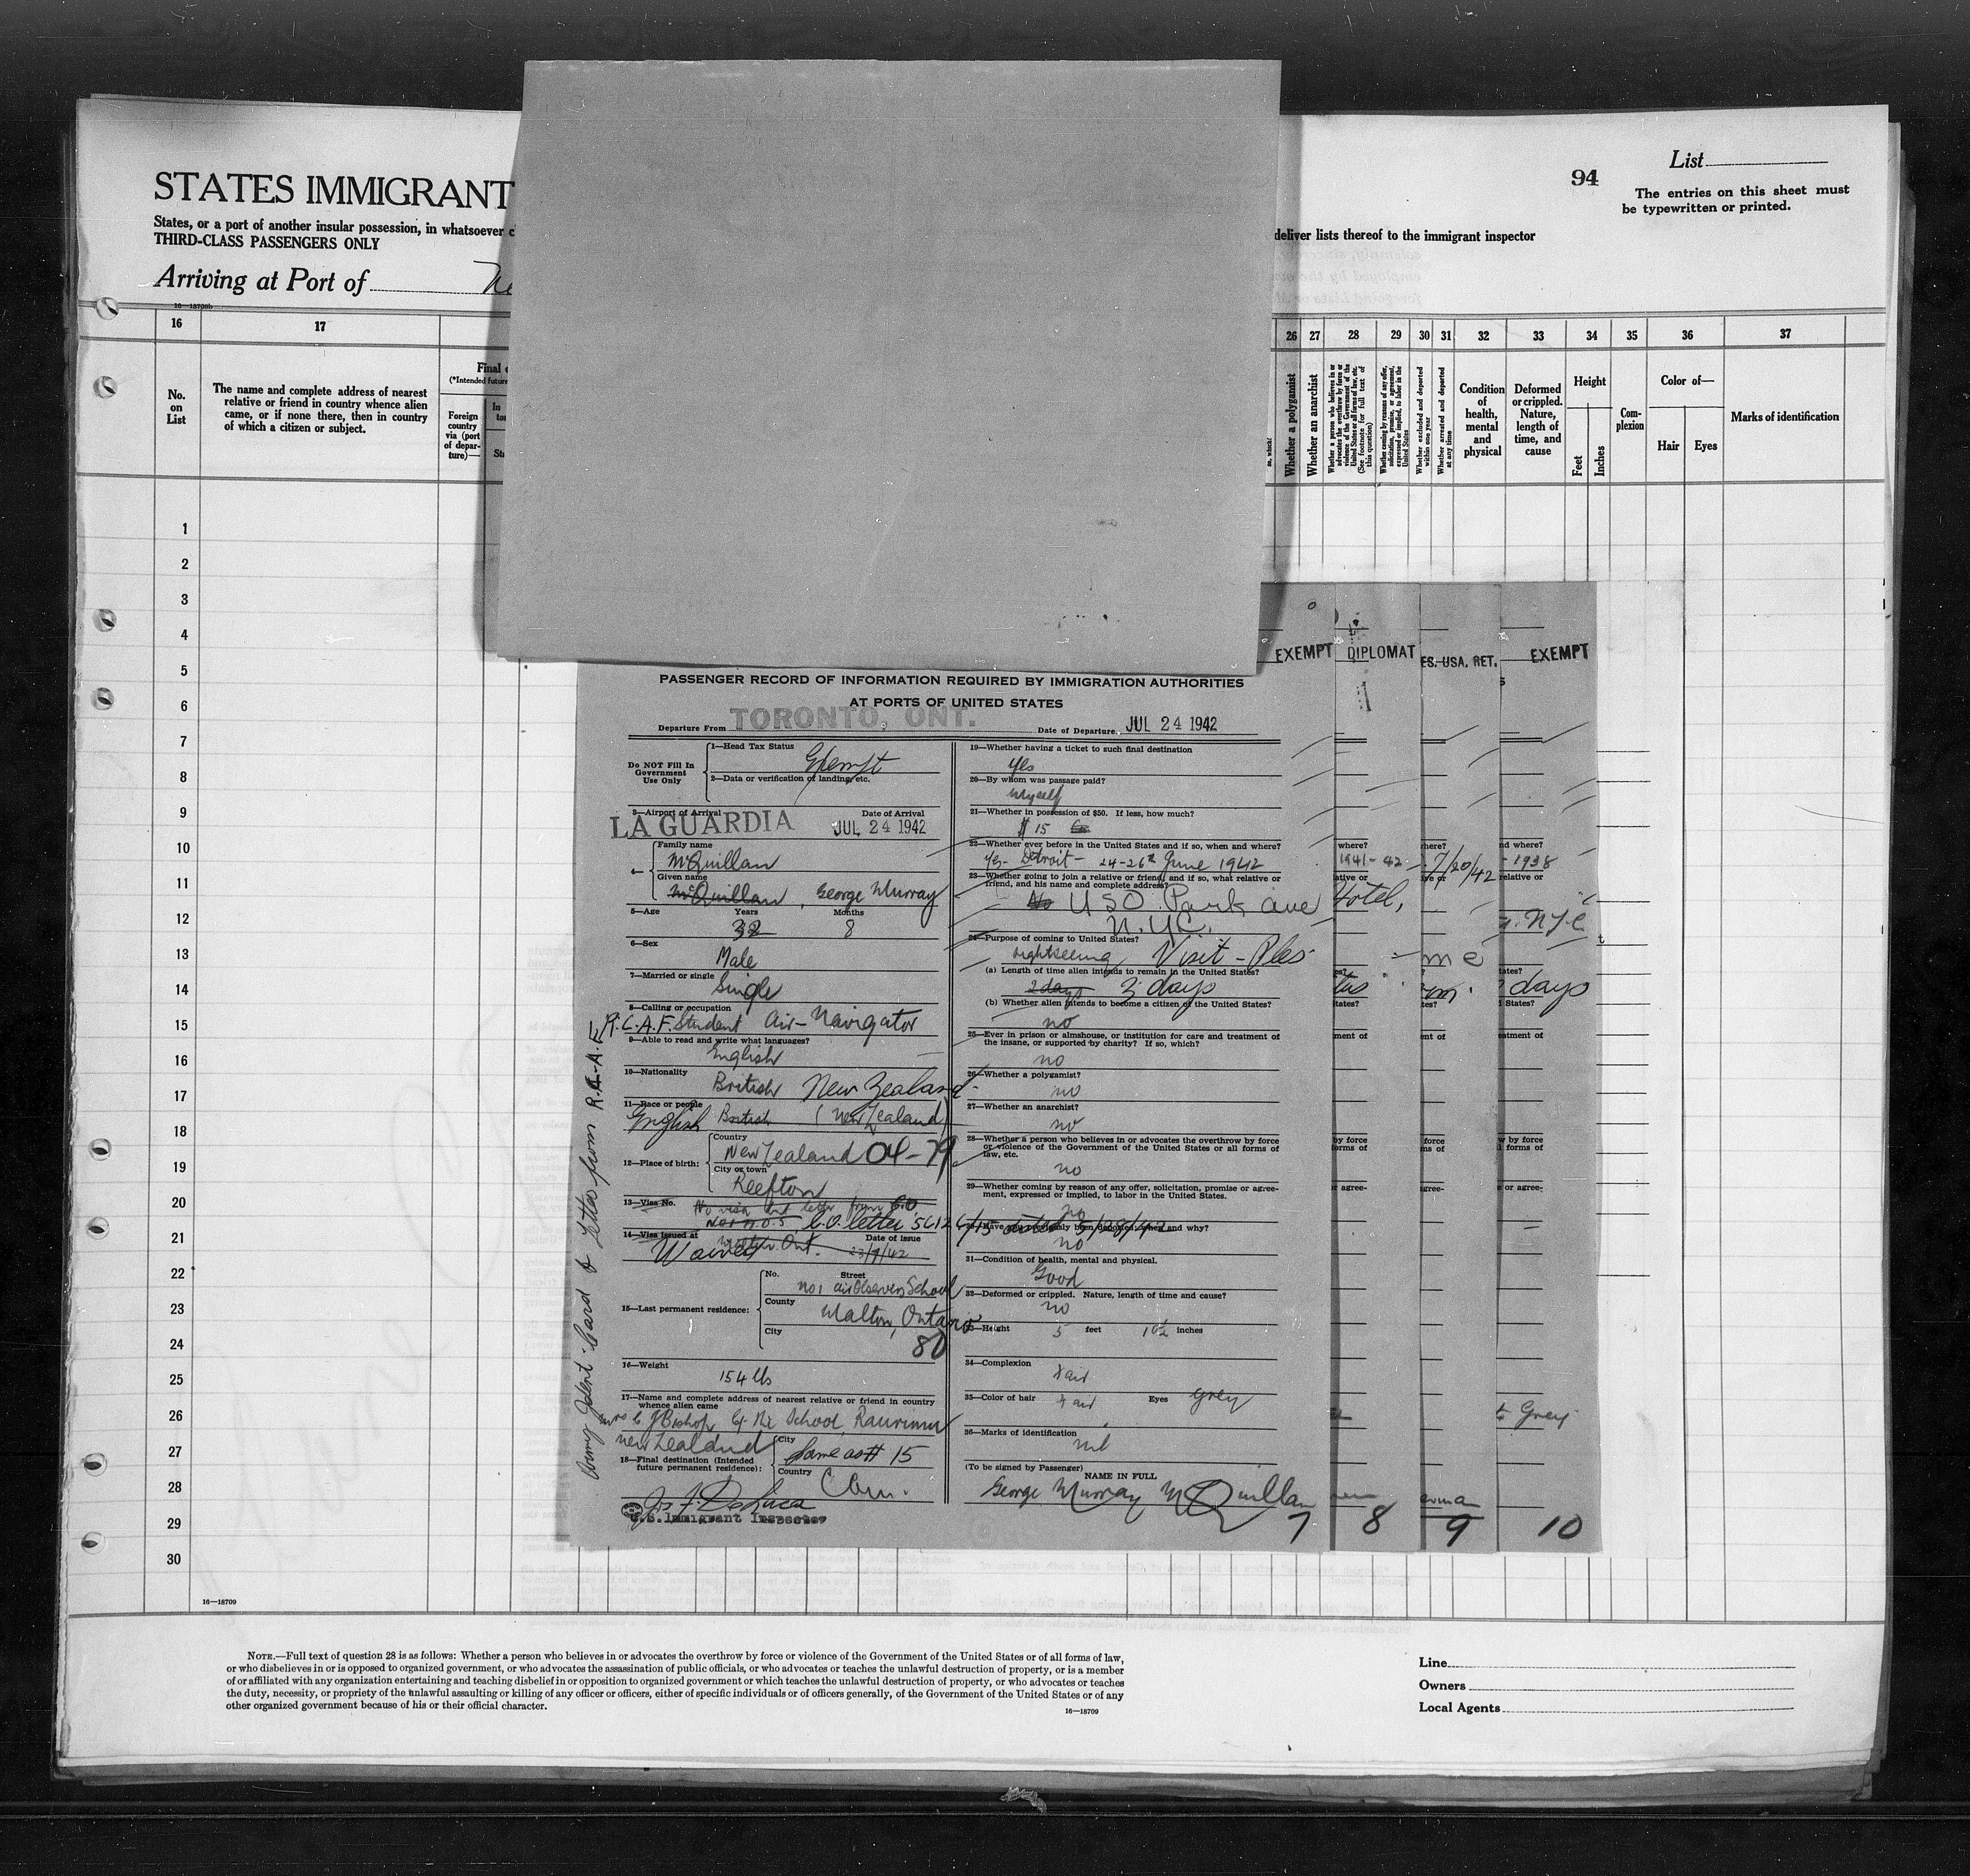 STATES IMMIGRANT
States, or a port of another insular possession, in whatsoever c
THIRD-CLASS PASSENGERS ONLY
Arriving at Port of
94
List
The entries on this sheet must
be typewritten or printed.
deliver lists thereof to the immigrant inspector
16—18709b
16 17 26 27 28 29 30 31 32 33 34 35 36 37
No.
on
List
The name and complete address of nearest
relative or friend in country whence alien
came, or if none there, then in country
of which a citizen or subject.
Final
(*Intended future
Foreign
country
via (port
of depar-
ture)—
Whether a polygamist
Whether an anarchist
Whether a person who believes in or
advocates the overthrow by force or
violence of the Government of the
United States or all forms of law, etc.
(See footnote for full text of
this question)
Whether coming by reasons of any offer,
solicitation, promise, or agreement,
expressed or implied, to labor in the
United States
Whether excluded and deported
within one year
Whether arrested and deported
at any time
Condition
of
health,
mental
and
physical
Deformed
or crippled.
Nature,
length of
time, and
cause
Height
Feet
Inches
Com-
plexion
Color of—
Hair
Eyes
Marks of identification
1
2
3
4
5
6
7
8
9
10
11
12
13
14
15
16
17
18
19
20
21
22
23
24
25
26
27
28
29
30
EXEMPT DIPLOMAT ES.-USA. RET. EXEMPT
PASSENGER RECORD OF INFORMATION REQUIRED BY IMMIGRATION AUTHORITIES
AT PORTS OF UNITED STATES
Departure From TORONTO, ONT. Date of Departure JUL 24 1942
Do NOT Fill In
Government
Use Only
1—Head Tax Status
Exempt
2—Data or verification of landing, etc.
3—Airport of Arrival Date of Arrival
LA GUARDIA JUL 24 1942
4— Family name
McQuillan
Given name
McQuillan, George Murray
5—Age Years Months
32 8
6—Sex
Male
7—Married or single
Single
8—Calling or occupation
R.C.A.F. Student Air-Navigator
9—Able to read and write what languages?
English
10—Nationality
British New Zealand
11—Race or people
English British (New Zealand)
12—Place of birth: Country
New Zealand 04-79
City or town
Reefton
13—Visa No.
No visa but letter from C.O.
C.O. letter
14—Visa issued at Date of issue
Waived Malton Ont. 23/7/42
15—Last permanent residence:
No. Street
No 1 Air Observers School
County
Malton, Ontario
City
80
16—Weight
154 lbs
17—Name and complete address of nearest relative or friend in country
whence alien came
Mrs C J Bishop C/- The School, Raurimu
New Zealand
18—Final destination (Intended
future permanent residence):
City
Same as # 15
Country
Can.
Jos F. DeLuca
U.S. Immigrant Inspector
Army Ident. Card & Letter from R.A.A.F.
19—Whether having a ticket to such final destination
Yes
20—By whom was passage paid?
Myself
21—Whether in possession of $50. If less, how much?
$ 15
22—Whether ever before in the United States and if so, when and where?
Yes- Detroit - 24-26th June 1942
23—Whether going to join a relative or friend; and if so, what relative or
friend, and his name and complete address?
No USO Park ave
N.YC.
24—Purpose of coming to United States?
Sightseeing Visit-Ples
(a) Length of time alien intends to remain in the United States?
2 days 3 days
(b) Whether alien intends to become a citizen of the United States?
no
25—Ever in prison or almshouse, or institution for care and treatment of
the insane, or supported by charity? If so, which?
no
26—Whether a polygamist?
no
27—Whether an anarchist?
no
28—Whether a person who believes in or advocates the overthrow by force
or violence of the Government of the United States or all forms of
law, etc.
no
29—Whether coming by reason of any offer, solicitation, promise or agree-
ment, expressed or implied, to labor in the United States.
no
30—Have you previously been deported; when and why?
no
31—Condition of health, mental and physical.
Good
32—Deformed or crippled. Nature, length of time and cause?
no
33—Height 5 feet 10½ inches
34—Complexion
Fair
35—Color of hair Fair Eyes grey
36—Marks of identification
nil
(To be signed by Passenger)
NAME IN FULL
George Murray McQuillan
7 8 9 10
where?
1941-42
Hotel,
7/20/42
1938
N.Y.C.
days
Grey
16—18709
NOTE.—Full text of question 28 is as follows: Whether a person who believes in or advocates the overthrow by force or violence of the Government of the United States or of all forms of law,
or who disbelieves in or is opposed to organized government, or who advocates the assassination of public officials, or who advocates or teaches the unlawful destruction of property, or is a member
of or affiliated with any organization entertaining and teaching disbelief in or opposition to organized government or which teaches the unlawful destruction of property, or who advocates or teaches
the duty, necessity, or propriety of the unlawful assaulting or killing of any officer or officers, either of specific individuals or of officers generally, of the Government of the United States or of any
other organized government because of his or their official character.
16—18709
Line
Owners
Local Agents